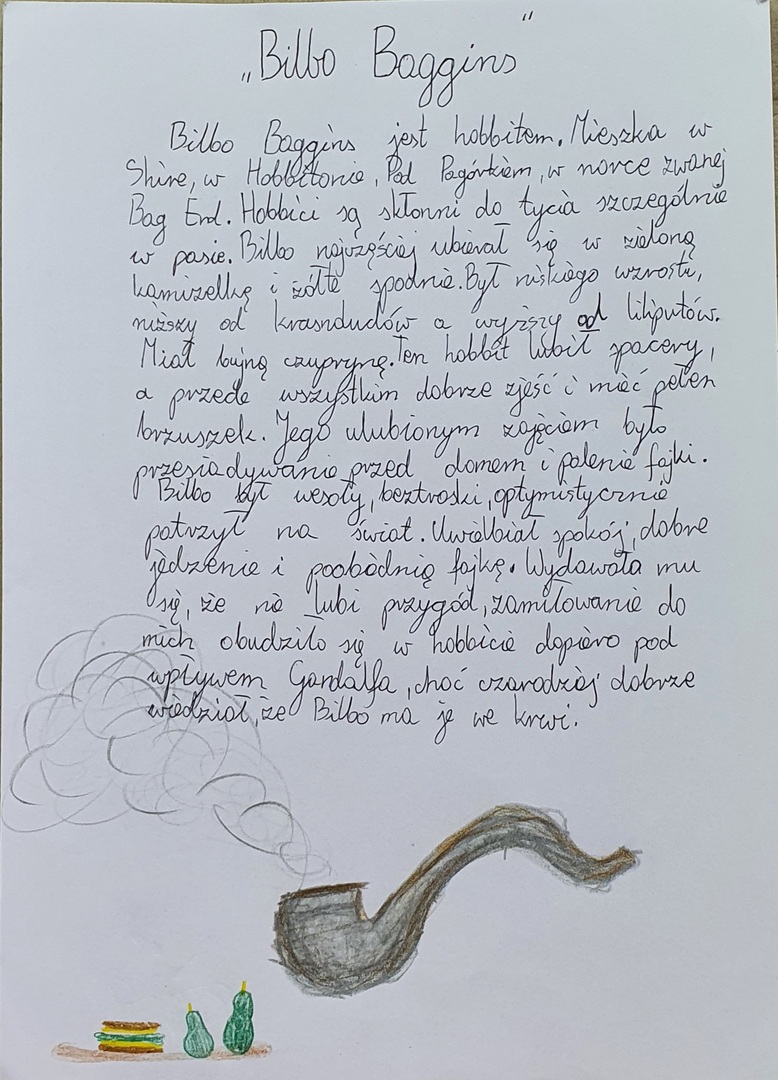 „Bilbo Baggins"
Bilbo Baggins jest hobbitem. Mieszka w
Shire, w Hobbitonie, Pod Pagórkiem, w norce zwanej
Bag End. Hobbici są skłonni do tycia szczególnie
w pasie. Bilbo najczęściej ubierał się w zieloną
kamizelkę i żółte spodnie. Był niskiego wzrostu,
niższy od krasnoludów a wyższy od liliputów.
Miał bujną czuprynę. Ten hobbit lubił spacery,
a przede wszystkim dobrze zjeść i mieć pełen
brzuszek. Jego ulubionym zajęciem było
przesiadywanie przed domem i palenie fajki.
Bilbo był wesoły, beztroski, optymistycznie
patrzył na świat. Uwielbiał spokój, dobre
jedzenie i poobiednią fajkę. Wydawało mu
się, że nie lubi przygód, zamiłowanie do
nich obudziło się w hobbicie dopiero pod
wpływem Gandalfa, choć czarodziej dobrze
wiedział, że Bilbo ma je we krwi.